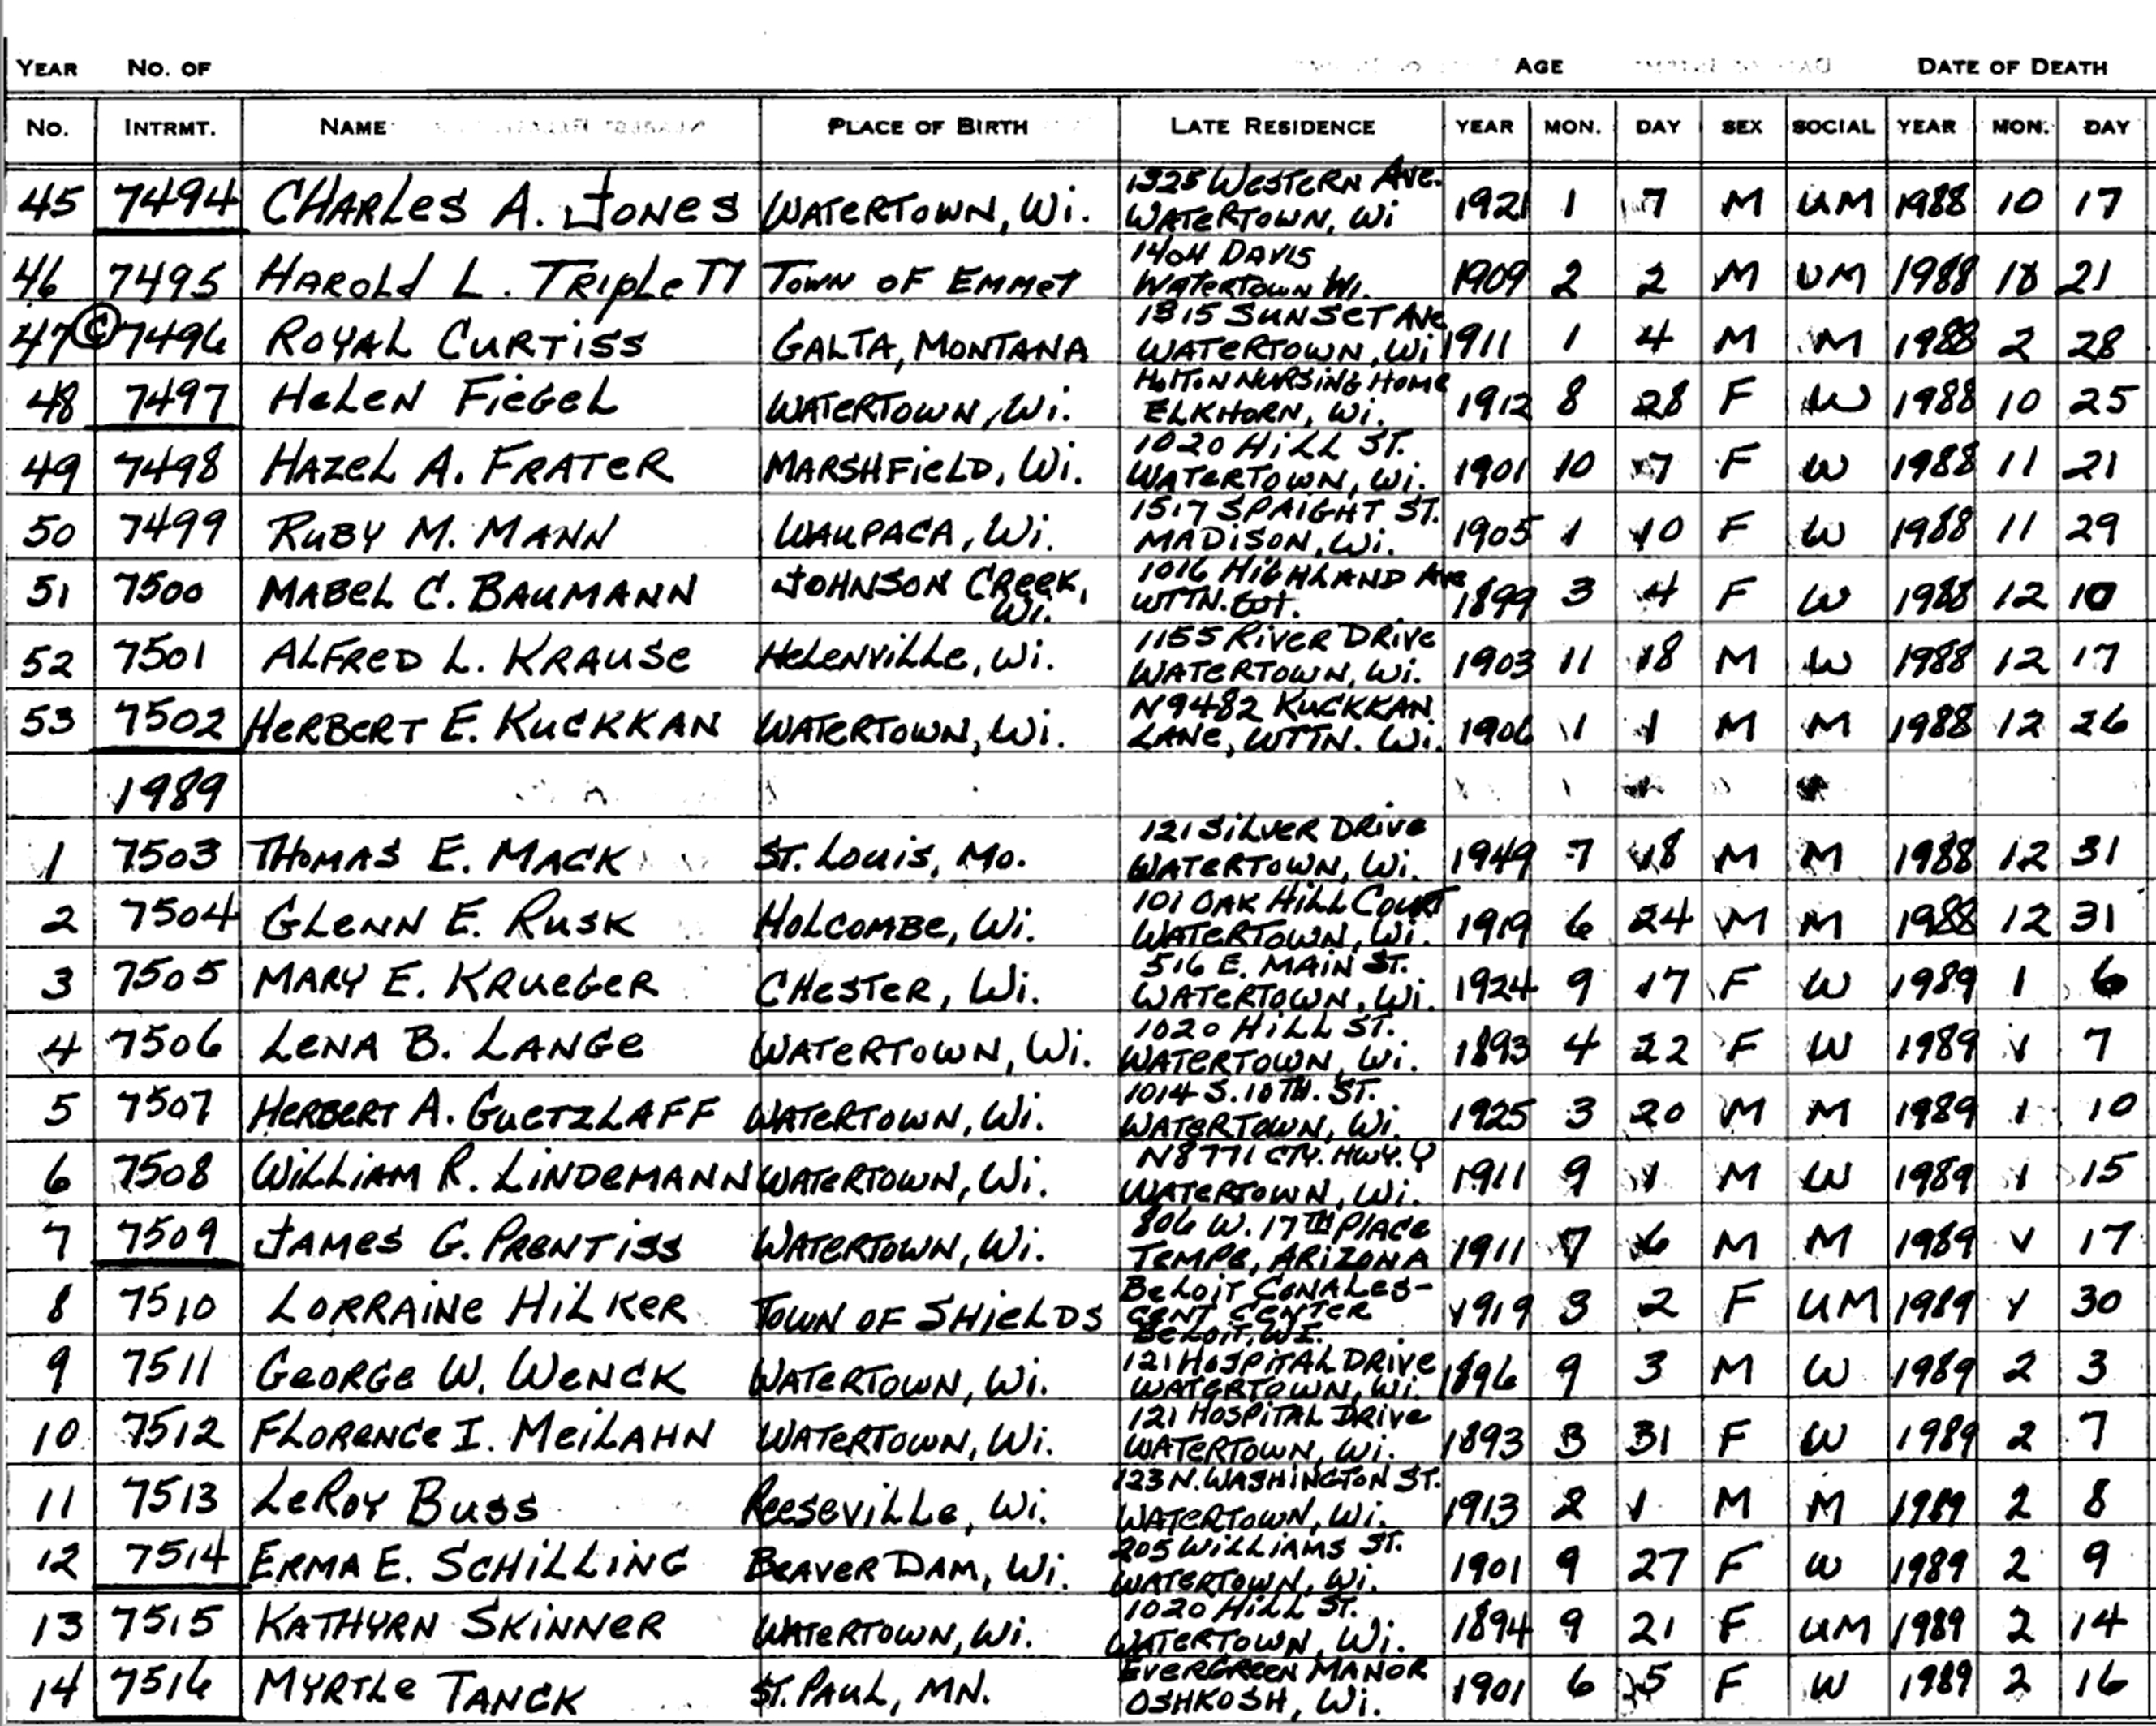 YEAR NO. OF AGE DATE OF DEATH
NO. INTRMT. NAME PLACE OF BIRTH LATE RESIDENCE YEAR MON. DAY SEX SOCIAL YEAR MON. DAY
45 7494 CHARLES A. JONES WATERTOWN, Wi. 1325 WESTERN AVE. WATERTOWN, Wi 1921 1 7 M UM 1988 10 17
46 7495 HAROLD L. TRIPLETT TOWN OF EMMET 1404 DAVIS WATERTOWN Wi. 1909 2 2 M UM 1988 10 21
47 C 7496 ROYAL CURTISS GALTA, MONTANA 1315 SUNSET AVE WATERTOWN, Wi 1911 1 4 M M 1988 2 28
48 7497 HELEN FIEGEL WATERTOWN, Wi. HOLTON NURSING HOME ELKHORN, Wi. 1912 8 28 F W 1988 10 25
49 7498 HAZEL A. FRATER MARSHFIELD, Wi. 1020 HILL ST. WATERTOWN, Wi. 1901 10 7 F W 1988 11 21
50 7499 RUBY M. MANN WAUPACA, Wi. 1517 SPAIGHT ST. MADISON, Wi. 1905 1 10 F W 1988 11 29
51 7500 MABEL C. BAUMANN JOHNSON CREEK, Wi. 1016 HIGHLAND AVE WTTN. Wi. 1899 3 4 F W 1988 12 10
52 7501 ALFRED L. KRAUSE HELENVILLE, Wi. 1155 RIVER DRIVE WATERTOWN, Wi. 1903 11 18 M W 1988 12 17
53 7502 HERBERT E. KUCKKAN WATERTOWN, Wi. N9482 KUCKKAN LANE, WTTN. Wi. 1906 1 1 M M 1988 12 26
1989
1 7503 THOMAS E. MACK ST. LOUIS, MO. 121 SILVER DRIVE WATERTOWN, Wi. 1949 7 18 M M 1988 12 31
2 7504 GLENN E. RUSK HOLCOMBE, Wi. 101 OAK HILL COURT WATERTOWN, Wi. 1919 6 24 M M 1988 12 31
3 7505 MARY E. KRUEGER CHESTER, Wi. 516 E. MAIN ST. WATERTOWN, Wi. 1924 9 17 F W 1989 1 6
4 7506 LENA B. LANGE WATERTOWN, Wi. 1020 HILL ST. WATERTOWN, Wi. 1893 4 22 F W 1989 1 7
5 7507 HERBERT A. GUETZLAFF WATERTOWN, Wi. 1014 S. 10TH. ST. WATERTOWN, Wi. 1925 3 20 M M 1989 1 10
6 7508 WILLIAM R. LINDEMANN WATERTOWN, Wi. N8771 CTY. HWY. Y WATERTOWN, Wi. 1911 9 1 M W 1989 1 15
7 7509 JAMES G. PRENTISS WATERTOWN, Wi. 806 W. 17TH PLACE TEMPE, ARIZONA 1911 7 6 M M 1989 1 17
8 7510 LORRAINE HILKER TOWN OF SHIELDS BELOIT CONALES-CENT CENTER BELOIT, WI. 1919 3 2 F UM 1989 1 30
9 7511 GEORGE W. WENCK WATERTOWN, Wi. 121 HOSPITAL DRIVE WATERTOWN, Wi. 1896 9 3 M W 1989 2 3
10 7512 FLORENCE I. MEILAHN WATERTOWN, Wi. 121 HOSPITAL DRIVE WATERTOWN, Wi. 1893 3 31 F W 1989 2 7
11 7513 LEROY BUSS REESEVILLE, Wi. 123 N. WASHINGTON ST. WATERTOWN, Wi. 1913 2 1 M M 1989 2 8
12 7514 ERMA E. SCHILLING BEAVER DAM, Wi. 205 WILLIAMS ST. WATERTOWN, Wi. 1901 9 27 F W 1989 2 9
13 7515 KATHYRN SKINNER WATERTOWN, Wi. 1020 HILL ST. WATERTOWN, Wi. 1894 9 21 F UM 1989 2 14
14 7516 MYRTLE TANCK ST. PAUL, MN. EVERGREEN MANOR OSHKOSH, Wi. 1901 6 5 F W 1989 2 16